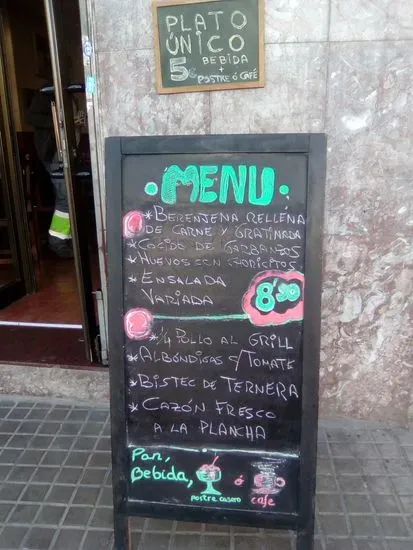 PLATO
ÚNICO
5€ BEBIDA
+
POSTRE Ó CAFÉ
MENU
* BERENJENA RELLENA
DE CARNE Y GRATINADA
* COCIDO DE GARBANZOS
* HUEVOS CON CHORICITOS
* ENSALADA
VARIADA
8'50
* 1/4 POLLO AL GRILL
* ALBÓNDIGAS C/TOMATE
* BISTEC DE TERNERA
* CAZÓN FRESCO
A LA PLANCHA
Pan,
Bebida,
ó
postre casero
cafe